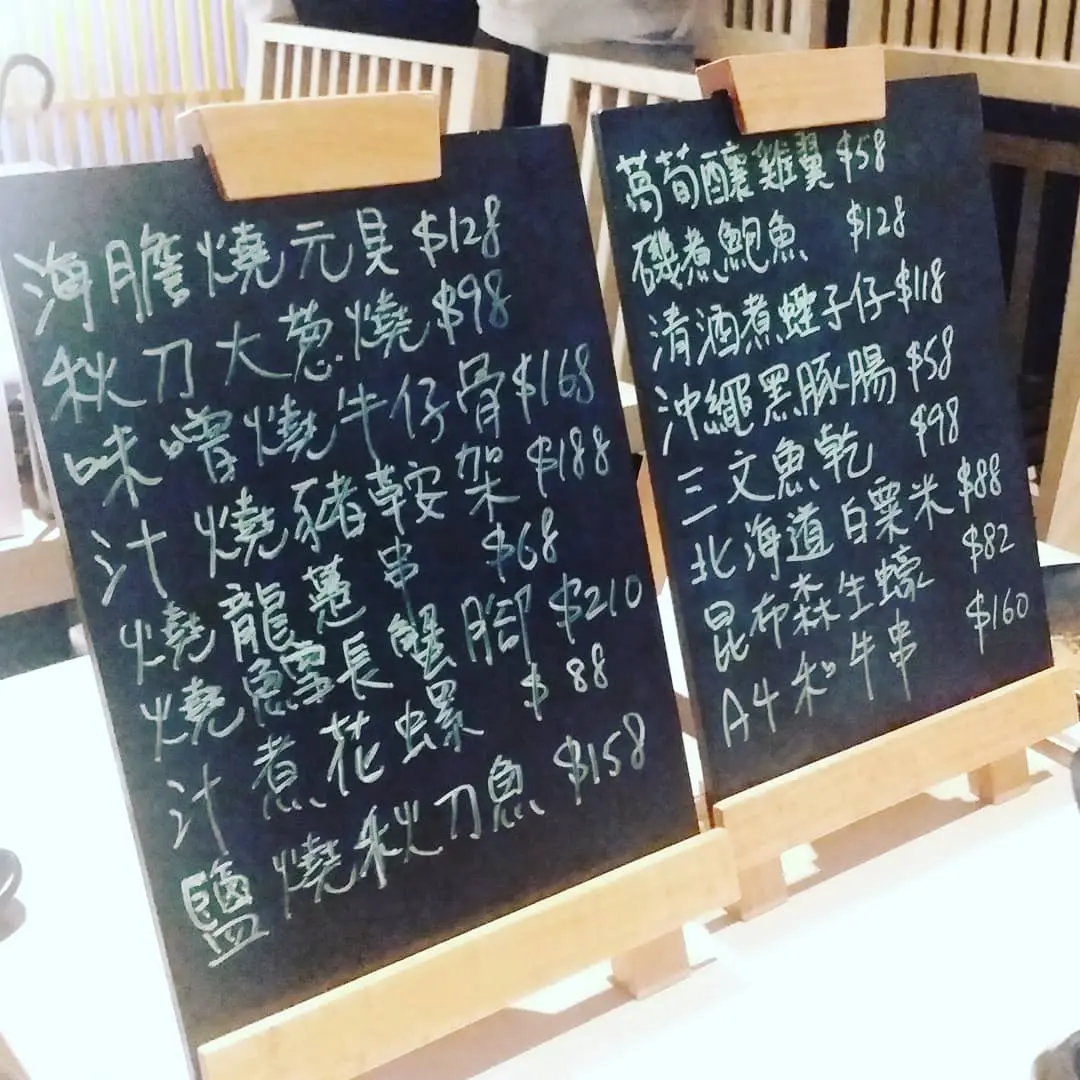 海膽燒元貝 $128
秋刀大葱燒 $98
味噌燒牛仔骨 $168
汁燒豬鞍架 $188
燒龍躉串 $68
燒鱈長蟹腳 $210
汁煮花螺 $88
鹽燒秋刀魚 $158
萵荀釀雞翼 $58
磯煮鮑魚 $128
清酒煮蟶子仔 $118
沖繩黑豚腸 $58
三文魚乾 $98
北海道白粟米 $88
昆布森生蠔 $82
A4和牛串 $160